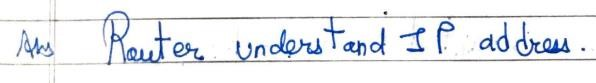 Ans Router understand IP address.